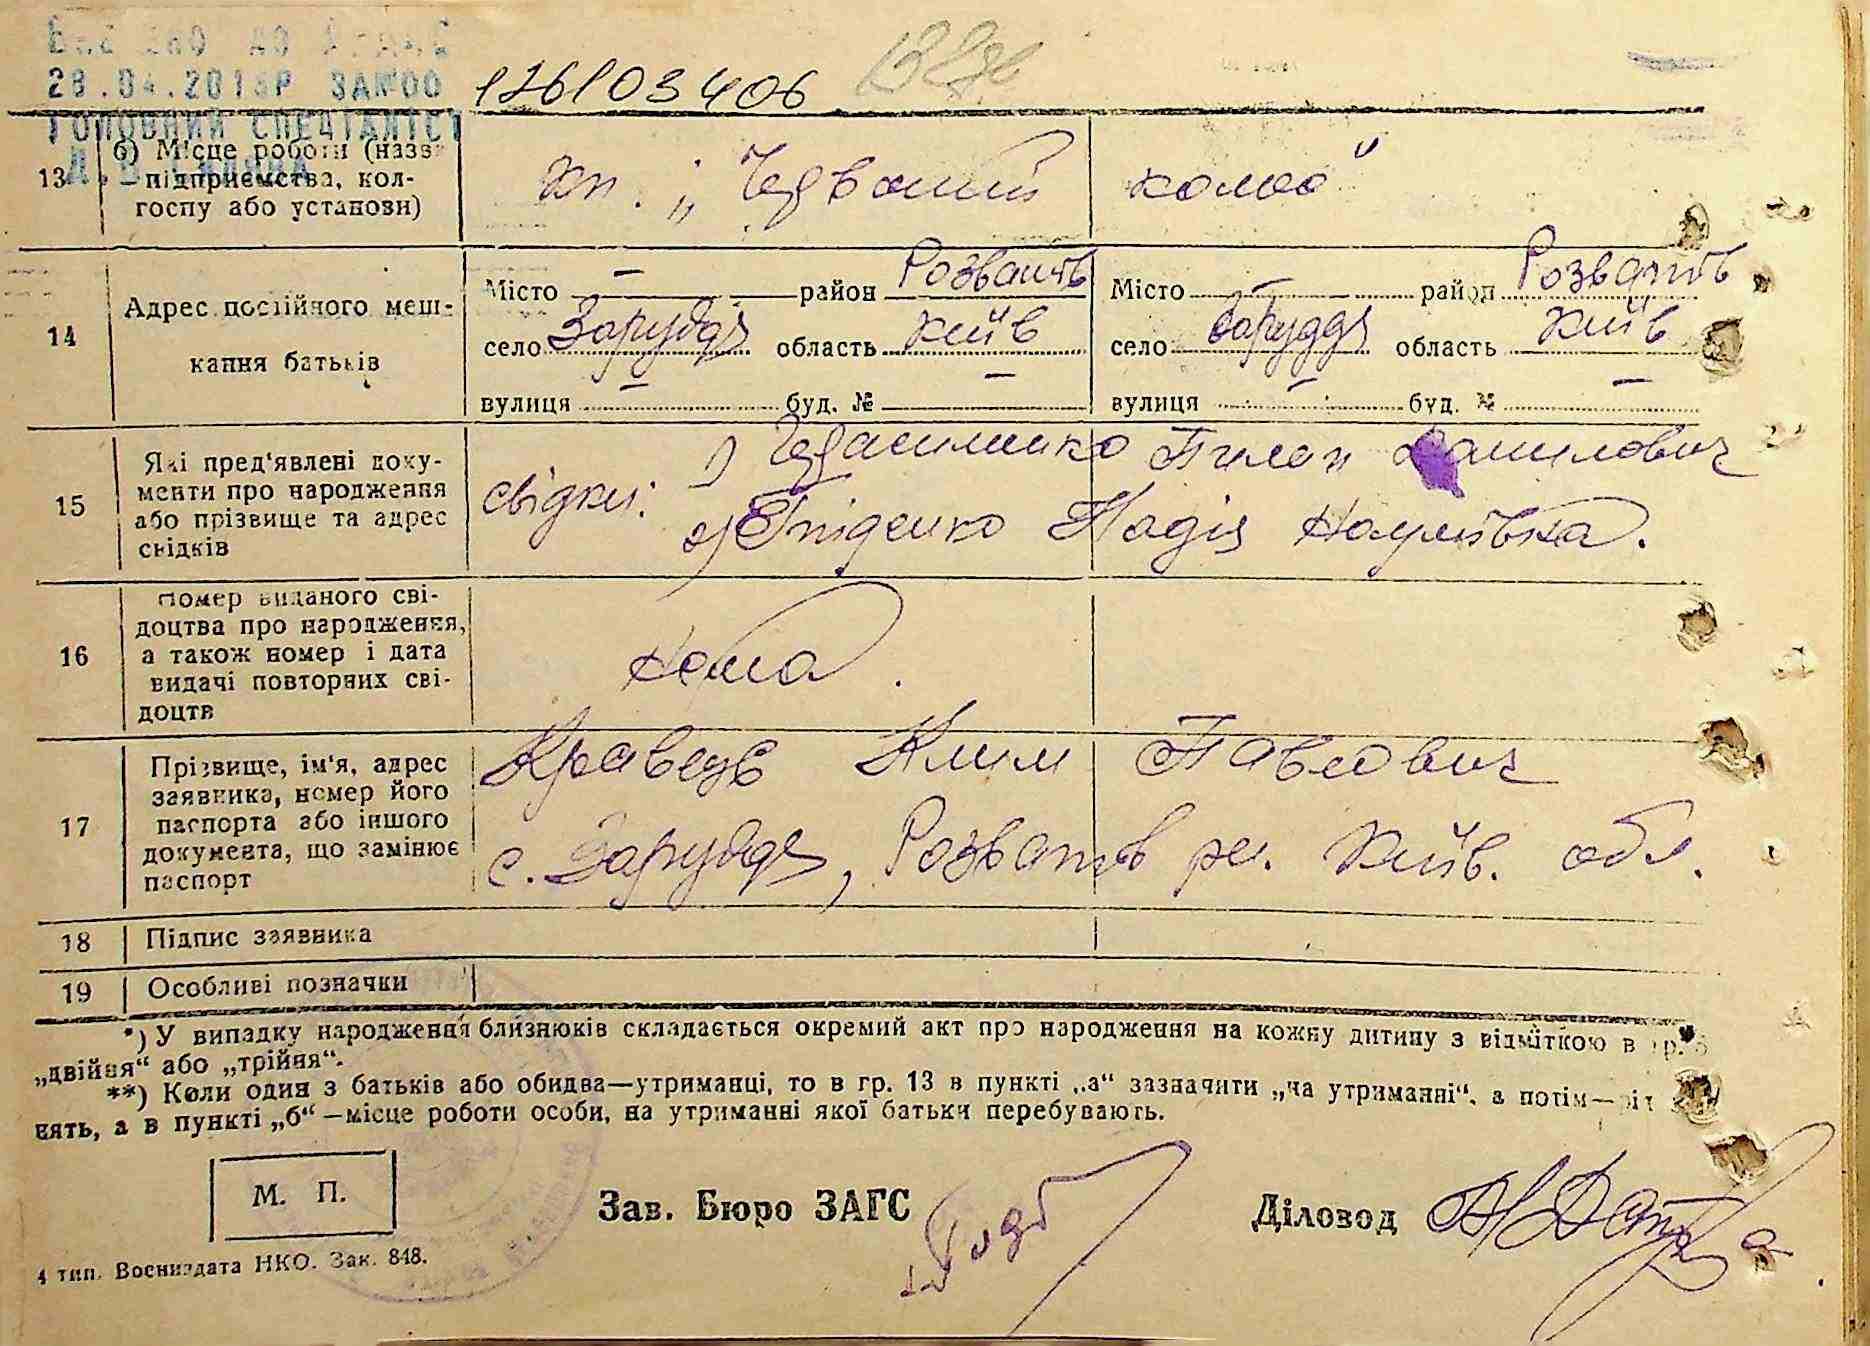 28.04.2015Р
ГОЛОВНИЙ СПЕЦІАЛІСТ
126103406
13
б) Місце роботи (назва
підприємства, кол-
госпу або установи)
кп. „Червоний колос"
14
Адрес постійного меш-
кання батьків
Місто — район Розваж
Місто — район Розваж
село Заруддя область Київ
село Заруддя область Київ
вулиця — буд. № —
вулиця — буд. № —
15
Які пред'явлені доку-
менти про народження
або прізвище та адрес
свідків
свідки: 1) Герасименко Пилип Данилович
2) Гніденко Надія Наумівна.
16
Номер виданого сві-
доцтва про народження,
а також номер і дата
видачі повторних сві-
доцтв
Нема.
17
Прізвище, ім'я, адрес
заявника, номер його
паспорта або іншого
документа, що замінює
паспорт
Кравець Клим Павлович
с. Заруддя, Розваж рн. Київ. обл.
18 Підпис заявника
19 Особливі позначки
*) У випадку народження близнюків складається окремий акт про народження на кожну дитину з відміткою в гр.
„двійня" або „трійня".
**) Коли один з батьків або обидва—утриманці, то в гр. 13 в пункті „а" зазначити „на утриманні", а потім—
нять, а в пункті „б"—місце роботи особи, на утриманні якої батьки перебувають.
М. П.
Зав. Бюро ЗАГС
Діловод
4 тип. Воениздата НКО. Зак. 848.